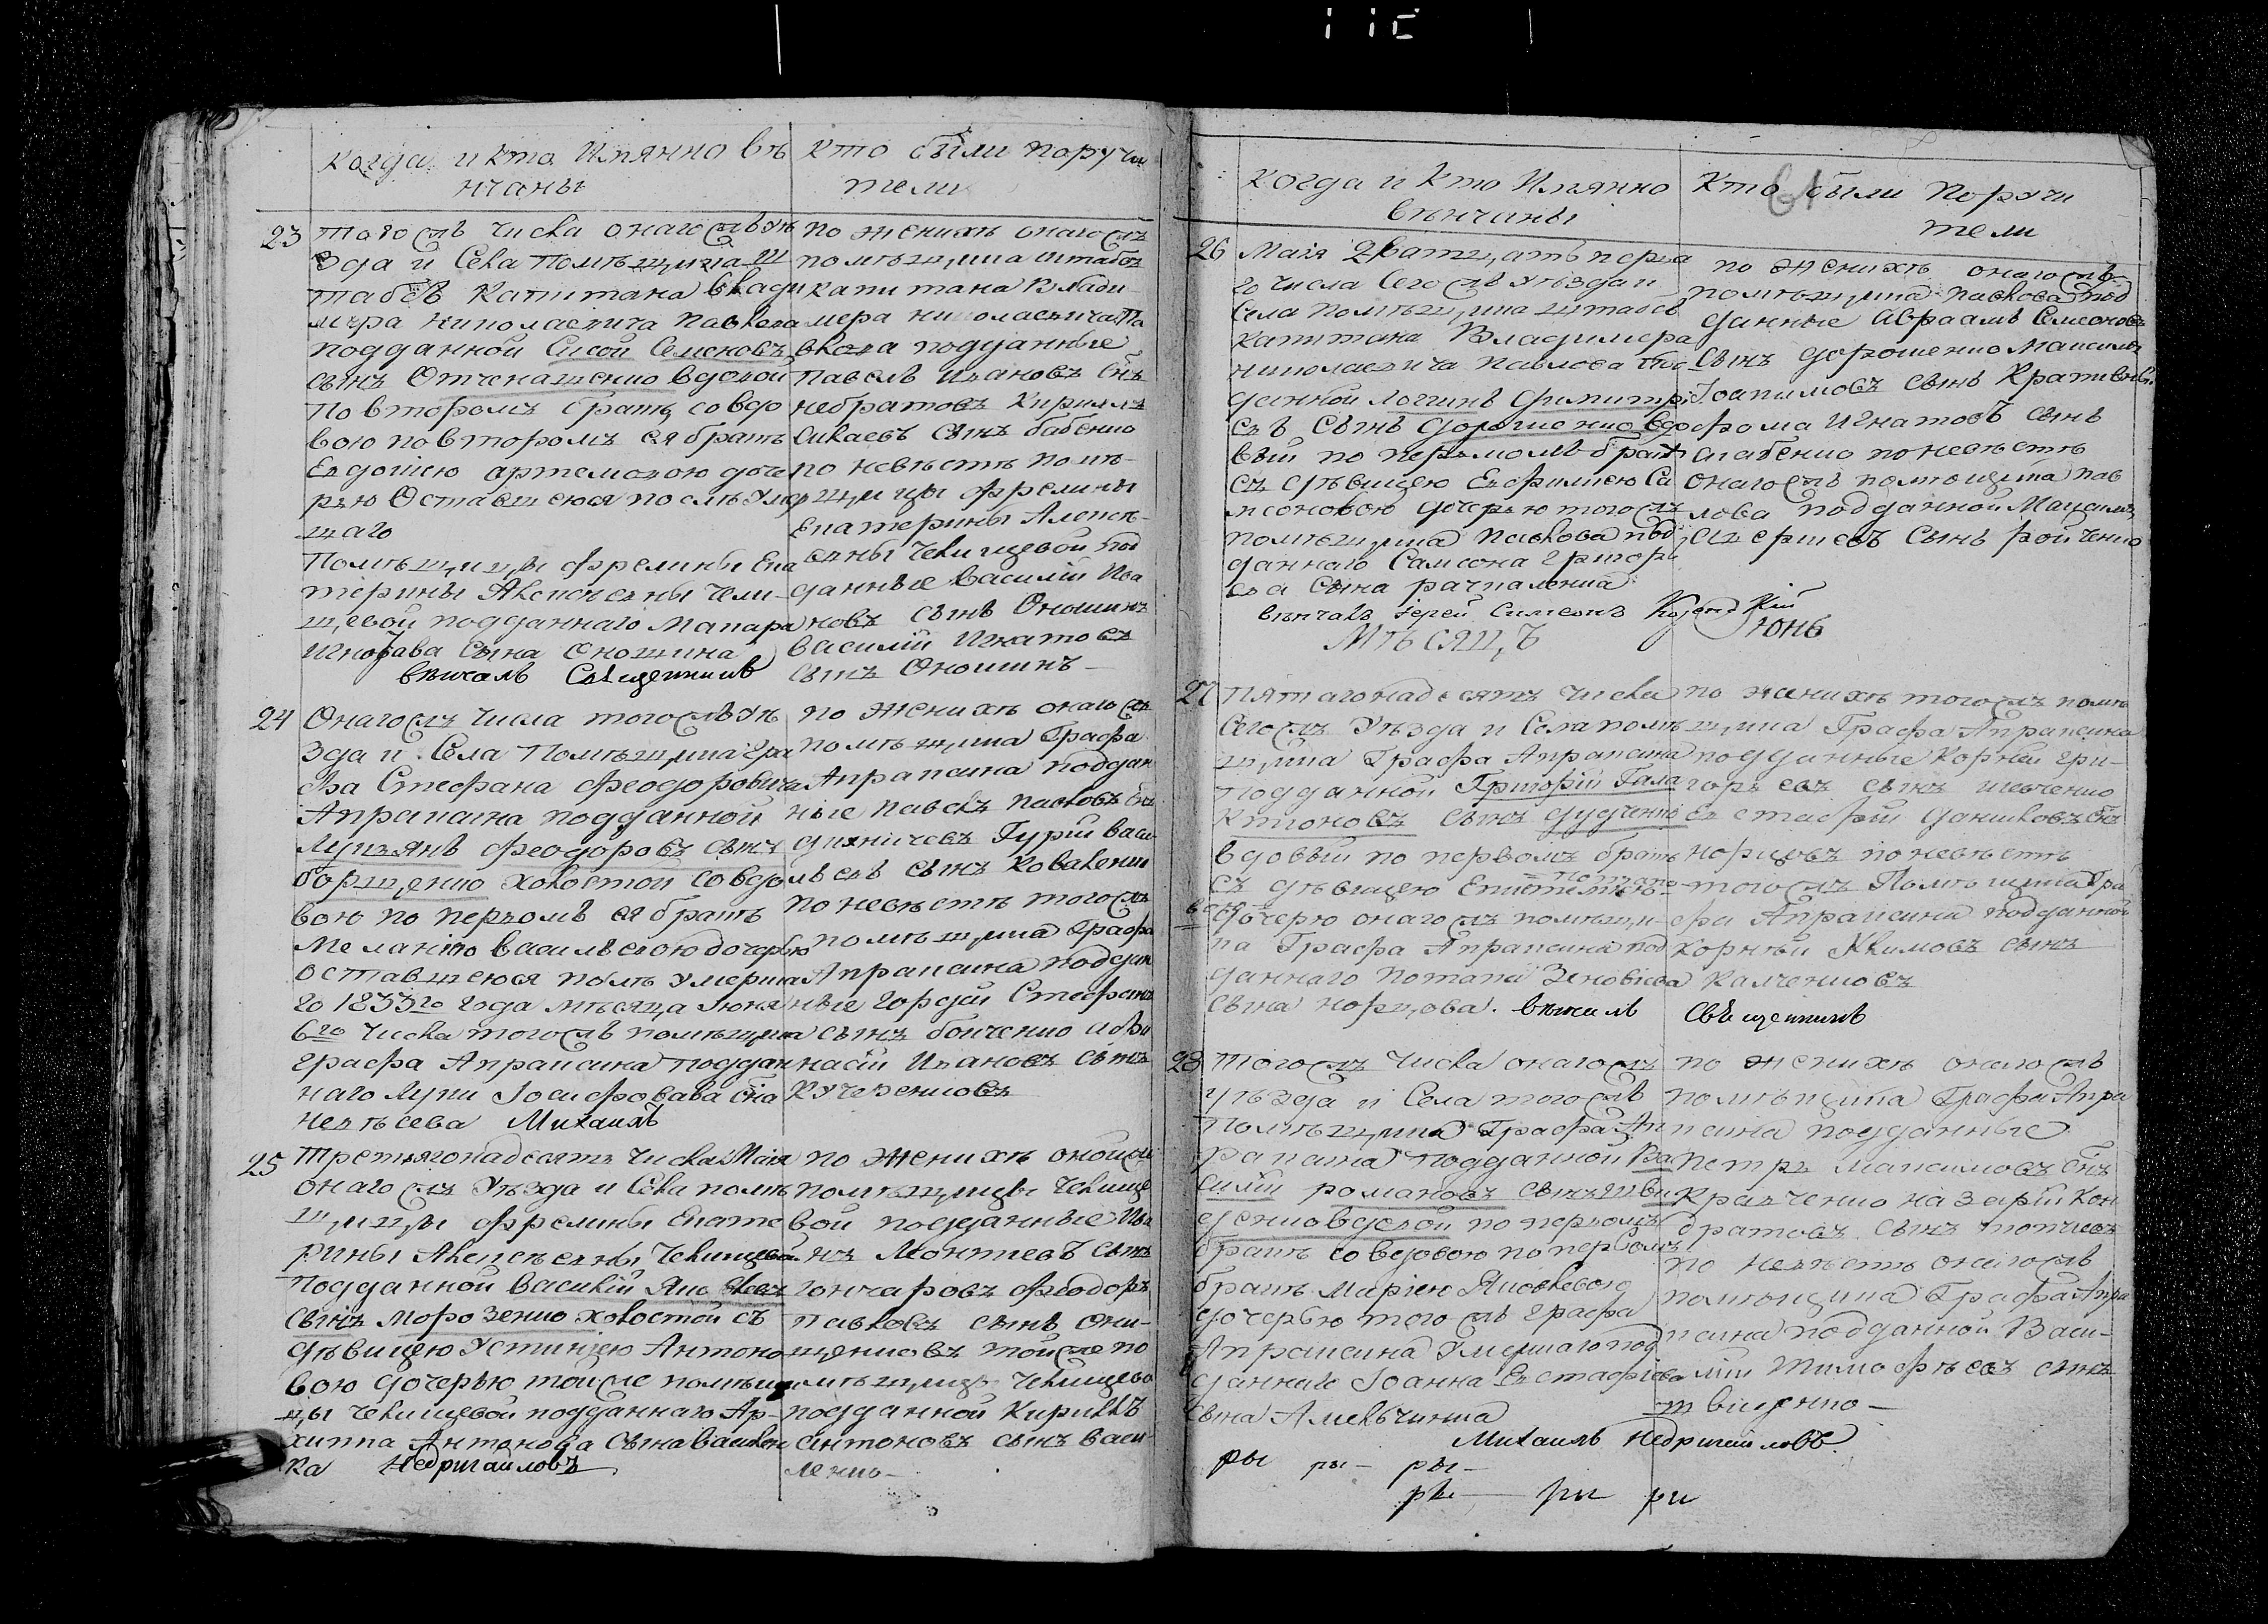 когда и кто Имянно вѣ
нчаны
кто были поручи
тели
23
тогожъ числа онагожъ уѣ
зда и Села Помѣщика Ш
табсъ Капитана Влади
мѣра Николаевича Павлова
подданной Сисой Семеновъ
сынъ Отченашенко вдовой
По второмъ бракѣ со вдо
вою по второмъ ея бракѣ
Евдокіею артемовою доче
рью Оставшеюся послѣ Умер
шаго
Помѣщицы фрелины Ека
терины Алексѣевны Чели
щевой подданнаго Макара
Игнатава Сына Оношина
вѣнчалъ Священникъ
по женихѣ онагожъ
помѣщика штабсъ
капитана Влади
мера николаевича Па
влова подданные
Павелъ Ивановъ снъ
Кириллъ
сынъ бабенко
по невѣстѣ помѣ
щицы фрелины
Екатерины Алексѣ
евны Челищевой под
данные Василій Ива
новъ сынъ Оношинъ
Василій Игнатовъ
сынъ Оношинъ
24
Онагожъ числа тогожъ уѣ
зда и Села Помѣщика Гра
фа Стефана Феодоровича
Апраксина подданной
Лукіянъ Феодоровъ сынъ
борщенко холостой со вдо
вою по первомъ ея бракѣ
Меланіею Васильевою дочерью
оставшеюся послѣ умерша
го 1833го года мѣсяца Июня
6го числа тогожъ помѣщика
графа Апраксина поддан
наго Луки Іосифовава сна
Евсева Михаилъ
по женихѣ онагожъ
помѣщика Графа
Апраксина поддан
ные Павелъ Павловъ снъ
Гурій Васи
льевъ сынъ Коваленко
по невѣстѣ тогожъ
помѣщика Графа
Апраксина поддан
ные Гордѣй Стефановъ
сынъ бойченко Афа
насій Ивановъ сынъ
Кучеренковъ
25
третьягонадесять числа Маія
онагожъ Уѣзда и Села помѣ
щицы фрелины Екате
рины Алексѣевны Челищевой
подданной Василій Яковлевъ
сынъ Морозенко холостой съ
дѣвицею Устиніею Антоно
вою дочерью тойже помѣщи
цы Челищевой подданнаго Ар
хиппа Антонова Сына Василен
ка Недригайловъ
по женихѣ онойже
помѣщицы Челище
вой подданные Ива
нъ Леонтіевъ сынъ
Гончаровъ Феодоръ
Павловъ сынъ Они
щенковъ тойже по
мѣщицы Челищево
подданной Кириллъ
Антоновъ сынъ Васи
ленко
когда и кто Имянно
вѣнчаны
Кто были Поручи
тели
61
26
Маія двадцать перва
го числа Сегожъ уѣзда и
Села помѣщика штабсъ
капитана Владимера
николаевича Павлова под
данной Логгинъ Димитрі
евъ Сынъ Дорошенко вдо
вый по первомъ бракѣ
съ дѣвицею Евфиміею Са
мсоновою дочерью тогожъ
помѣщика Павлова под
даннаго Самсона Григорі
ева Сына
вѣнчалъ іерей Симеонъ
по женихѣ онагожъ
помѣщика Павлова под
данные Авраамъ Семеновъ
Сынъ Дорошенко Максимъ
Іоакимовъ сынъ
фома Игнатовъ сынъ
слабенко по невѣстѣ
онагожъ помѣщика Пав
лова подданной Максимъ
сынъ ройченко
Мѣсяцъ Июнь
27
Пятагонадесять числа
Сегожъ Уѣзда и Села помѣ
щика Графа Апраксина
подданной Григорій Гала
ктіоновъ сынъ Дудченко
вдовый по первомъ бракѣ
съ дѣвицею
Потапо
вою
дочерю онагожъ помѣщи
ка Графа Апраксина под
даннаго Потапа Зеновіева
сына норцова. вѣнчалъ Священникъ
по женихѣ тогожъ помѣ
щика Графа Апраксина
подданные Корней Гри
горьевъ сынъ шевченко
Евстафій Даниловъ снъ
норцовъ по невѣстѣ
тогожъ Помѣщика Гра
фа Апраксина подданной
Корнѣй Климовъ сынъ
Калченковъ
28
тогожъ числа онагожъ
уѣзда и Села тогожъ
Помѣщика Графа Ап
раксина подданной Ва
силій романовъ сынъ Шви
денко вдовой по первомъ
бракѣ со вдовою по первомъ
бракѣ Маріею Яковлевою
дочерью тогожъ графа
Апраксина Умершаго под
даннаго Іоанна Евстафіева
сына Амельченка
по женихѣ онагожъ
помѣщика Графа Апра
ксина подданные
Петръ Максимовъ снъ
Кравченко назарій Кон
дратовъ сынъ
по невѣстѣ онагожъ
помѣщика Графа Апра
ксина подданной Васи
лій Тимофѣевъ сынъ
швиденко
Михаилъ Недригайловъ.
ры ры ры
ры ры ри